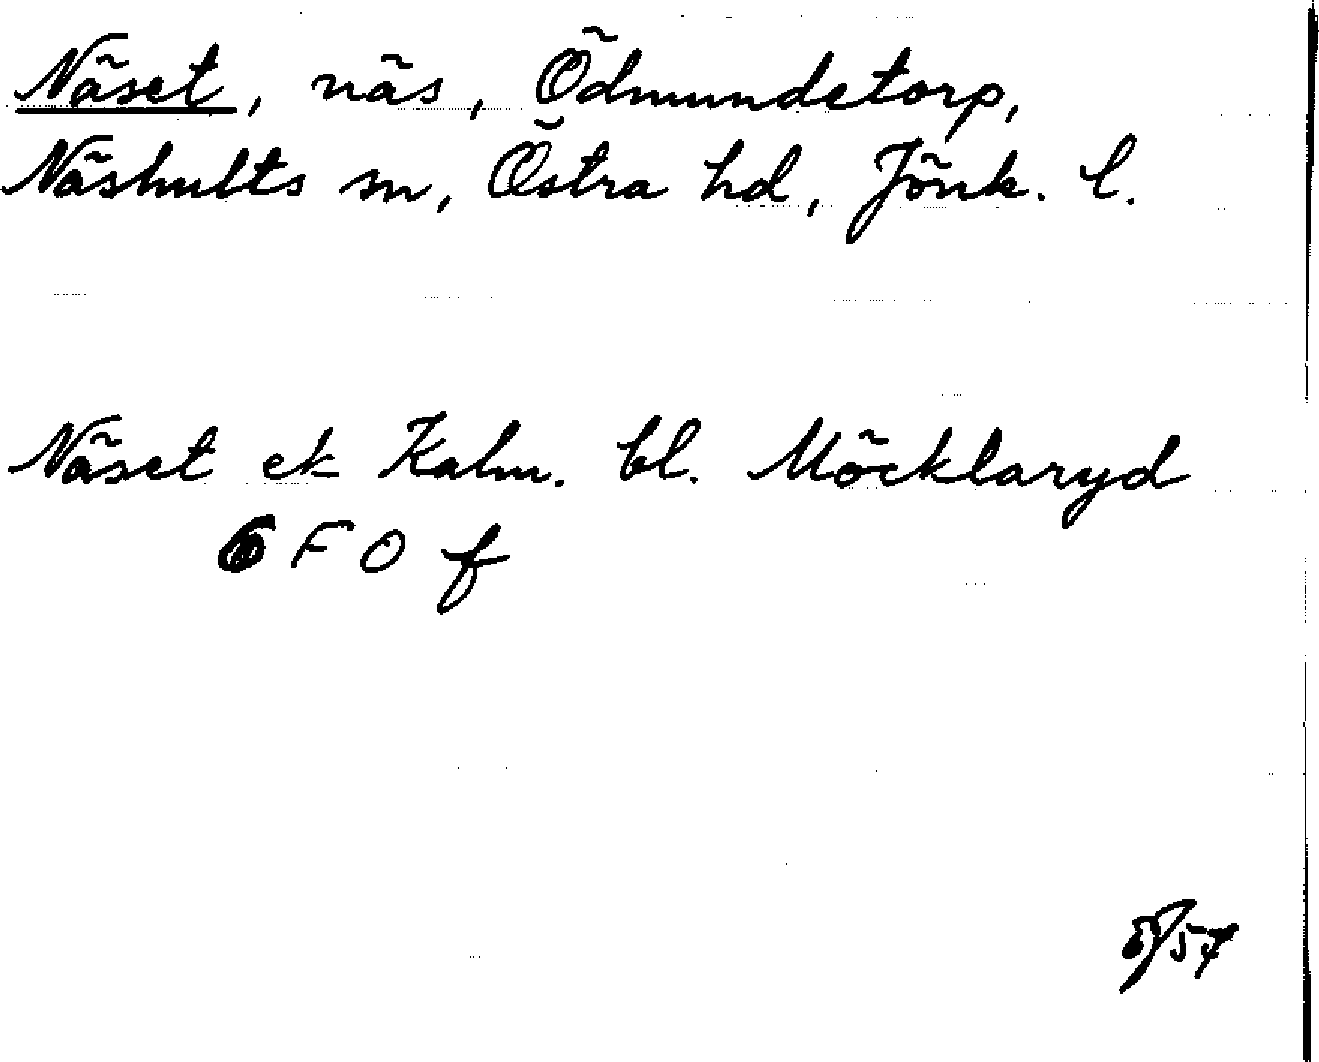 Näset, näs, Ödmundetorp,
Näshults sn, Östra hd, Jönk. l.
Näset ek Kalm. bl. Möcklaryd
6 F O f